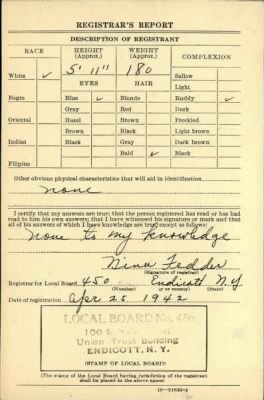 REGISTRAR'S REPORT
DESCRIPTION OF REGISTRANT
RACE HEIGHT (Approx.) WEIGHT (Approx.) COMPLEXION
White ✓ 5' 11" 180 Sallow
EYES HAIR Light
Negro Blue ✓ Blonde Ruddy ✓
Gray Red Dark
Oriental Hazel Brown Freckled
Brown Black Light brown
Indian Black Gray Dark brown
Bald ✓ Black
Filipino
Other obvious physical characteristics that will aid in identification
none
I certify that my answers are true; that the person registered has read or has had
read to him his own answers; that I have witnessed his signature or mark and that
all of his answers of which I have knowledge are true except as follows:
None to my knowledge
Nina Fedder
(Signature of registrar)
Registrar for Local Board 450 Endicott N.Y.
(Number) (City or county) (State)
Date of registration Apr 25 1942
LOCAL BOARD No.
Union Trust Building
ENDICOTT, N. Y.
(STAMP OF LOCAL BOARD)
(The stamp of the Local Board having jurisdiction of the registrant
shall be placed in the above space)